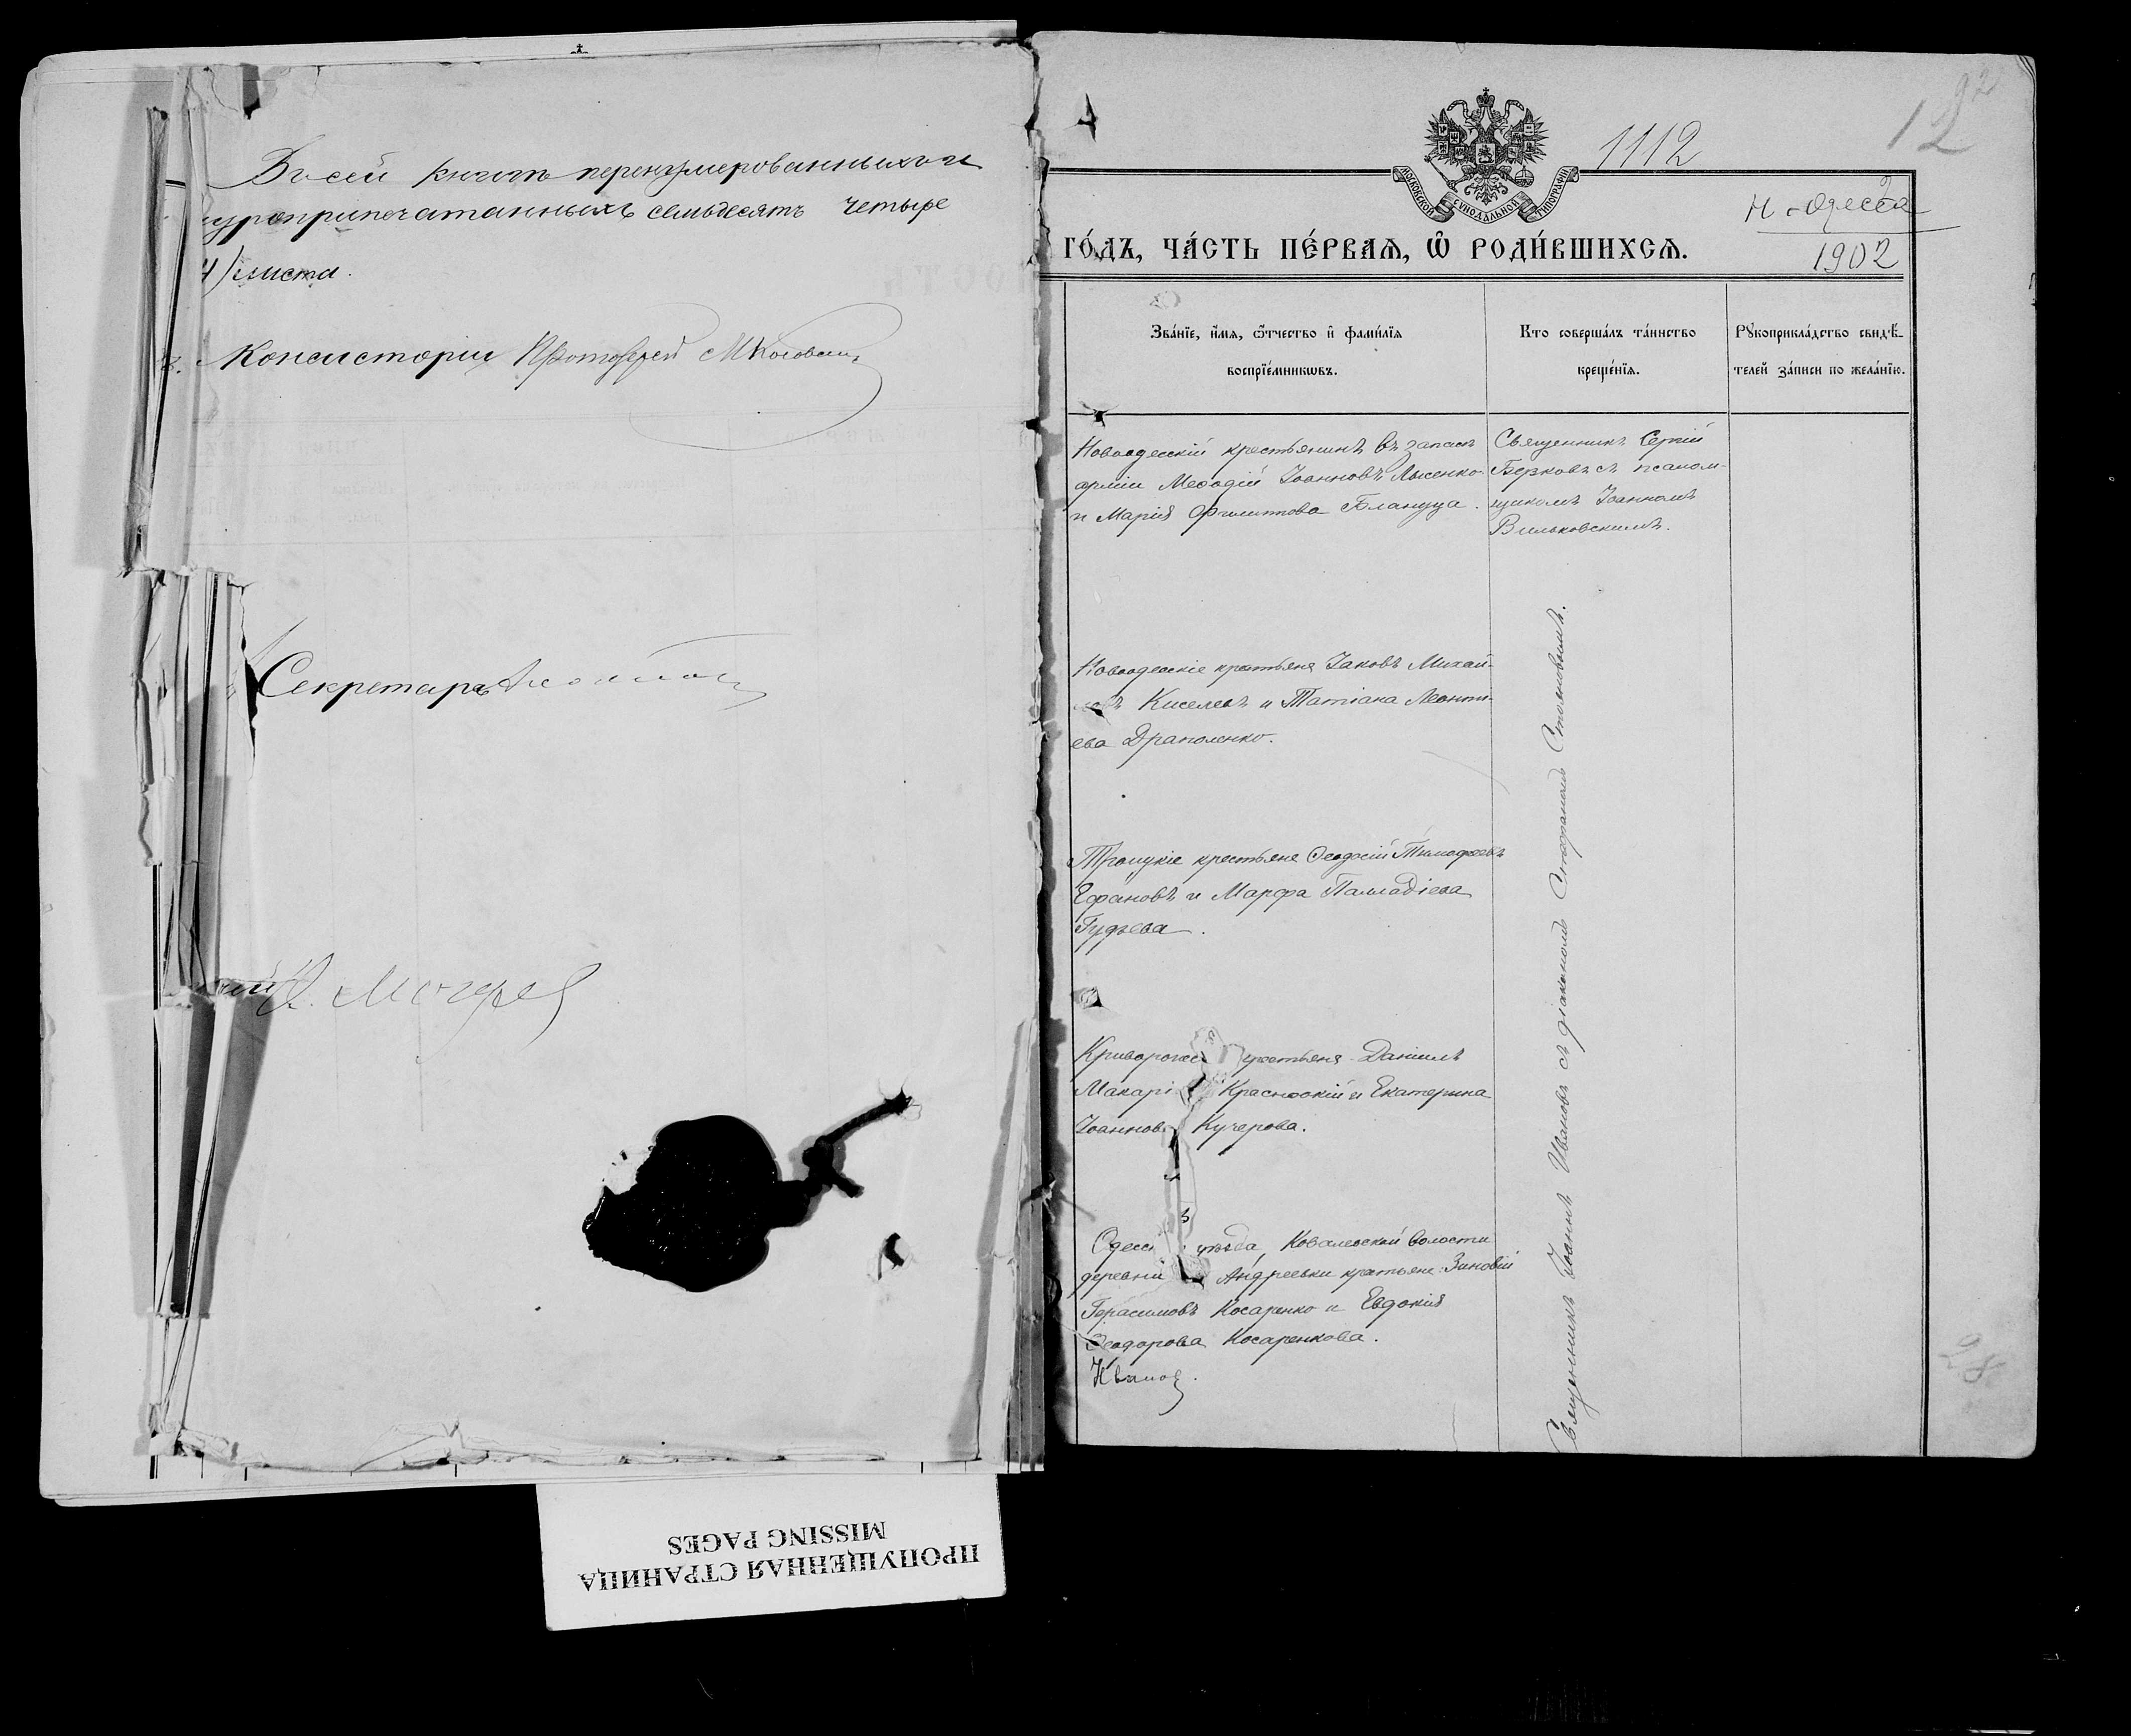 Въ сей книгѣ перенумерованныхъ и
шуроприпечатанныхъ семьдесятъ четыре
4) листа.
Консисторіи Протоіерей
Секретарь
МОСКОВСКОЙ СѴНОДАЛЬНОЙ ТИПОГРАФІИ
1112
12
92
Н-Одесса
1902
ГО́ДЪ, ЧА́СТЬ ПЕ́РВАѦ, Ѽ РОДИ́ВШИХСѦ.
Зва́нїе, и҆́мѧ, ѻ҆́тчество и҆ фами́лїѧ
воспрїе́мникѡвъ.
Кто соверша́лъ та́инство
креще́нїѧ.
Рꙋкоприкла́дство свидѣ́-
телей за́писи по жела́нїю.
Новоодесскій крестьянинъ въ запасѣ
арміи Меѳодій Іоанновъ Лысенко
и Марія Филиппова Блануца.
Священникъ Сергій
Берковъ съ псалом-
щикомъ Іоанномъ
Вильковскимъ.
Новоодесскіе крестьяне Іаковъ Михай-
Киселевъ и Татіана Леонти-
ева Драполенко.
Троицкіе крестьяне Ѳеодосій Тимофеевъ
Ефановъ и Марфа Палладіева
Гудзева.
крестьяне Даніилъ
Макарі Красноскій и Екатерина
Іоаннов Кучерова.
Одесс уѣзда, Ковалевской волости
деревни Андреевки кратьяне Зиновій
Герасимовъ Косаренко и Евдокія
Ѳеодорова Косаренкова.
Иванов.
Священникъ Іоаннъ Ивановъ съ діакономъ Стефаномъ Стояновымъ.
28
ПРОПУЩЕННАЯ СТРАНИЦА
MISSING PAGES